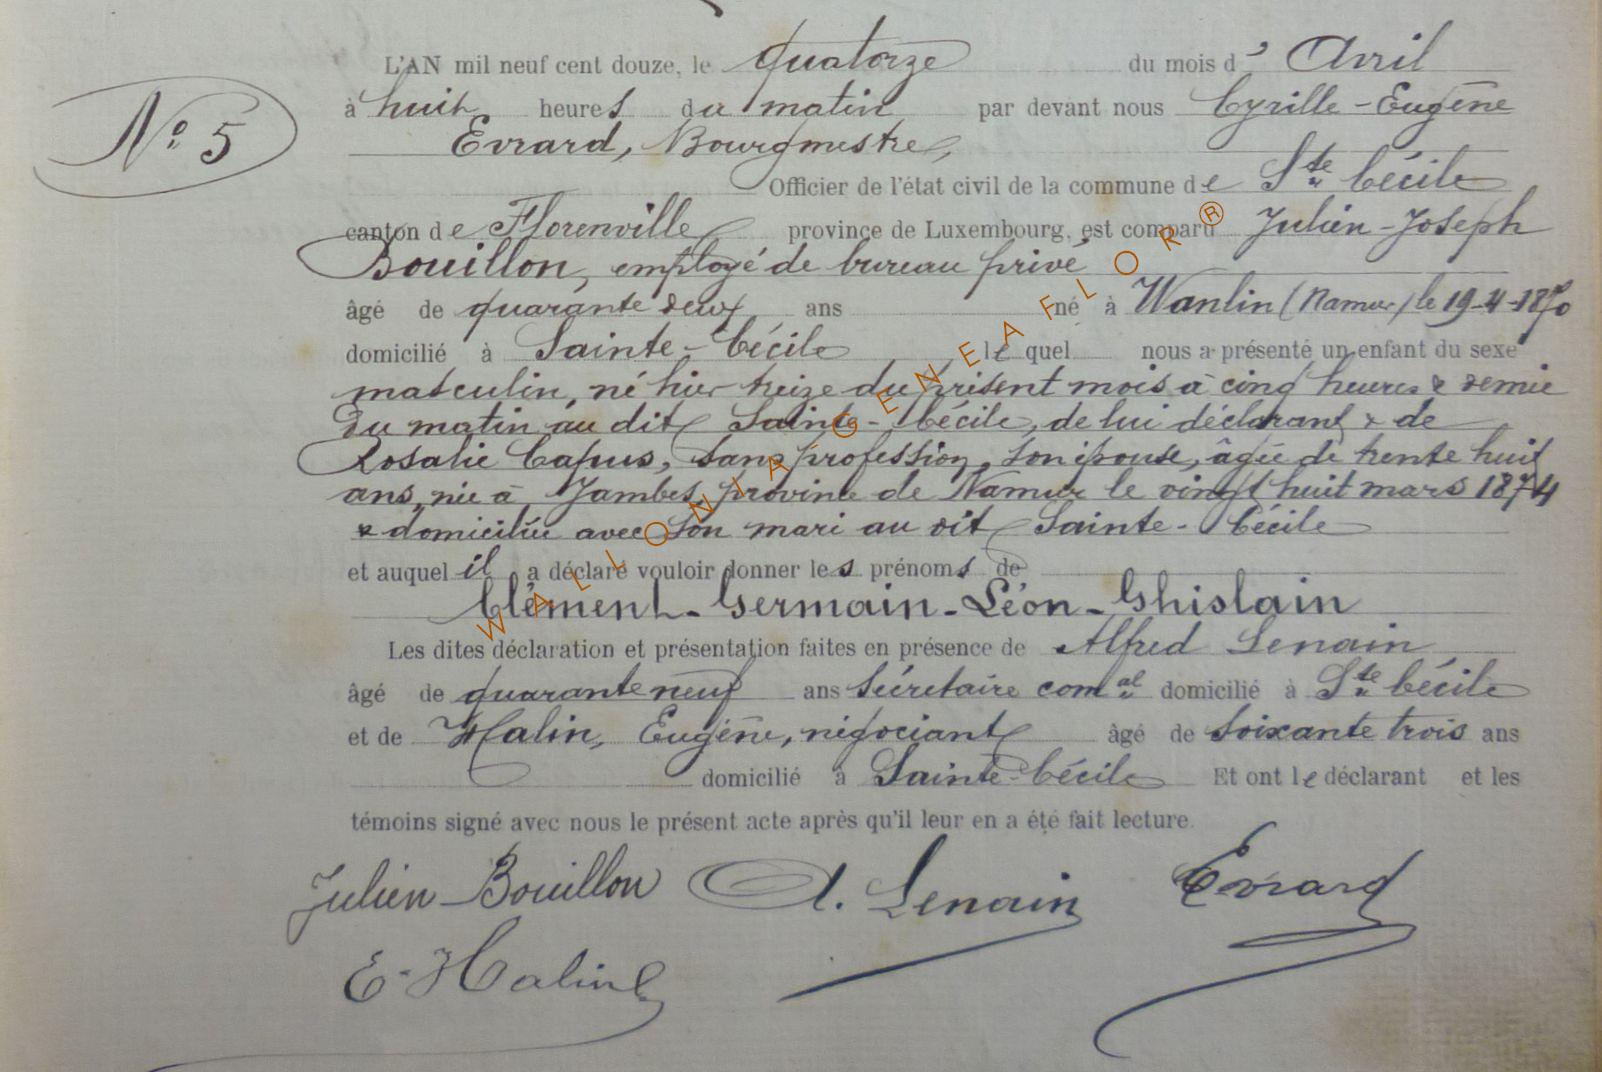 L'AN mil neuf cent douze, le quatorze du mois d'Avril
N° 5
à huit heures du matin par devant nous Cyrille-Eugène
Evrard, Bourgmestre,
Officier de l'état civil de la commune de Ste Cécile
canton de Florenville province de Luxembourg, est comparu Julien-Joseph
Bouillon, employé de bureau privé
âgé de quarante deux ans né à Wanlin (Namur) le 19-4-1870
domicilié à Sainte-Cécile lequel nous a présenté un enfant du sexe
masculin, né hier treize du présent mois à cinq heures & demie
du matin au dit Sainte-Cécile, de lui déclarant & de
Rosalie Capus, sans profession, son épouse, âgée de trente huit
ans, née à Jambes, province de Namur le vingt huit mars 1874
& domiciliée avec son mari au dit Sainte-Cécile
et auquel il a déclaré vouloir donner les prénoms de
Clément-Germain-Léon-Ghislain
Les dites déclaration et présentation faites en présence de Alfred Lenain
âgé de quarante neuf ans sécretaire comal domicilié à Ste Cécile
et de Halin, Eugène, négociant âgé de soixante trois ans
domicilié à Sainte-Cécile Et ont le déclarant et les
témoins signé avec nous le présent acte après qu'il leur en a été fait lecture.
Julien Bouillon A. Lenain Evrard
E. Halin
WALLONIA GENEAFLOR®